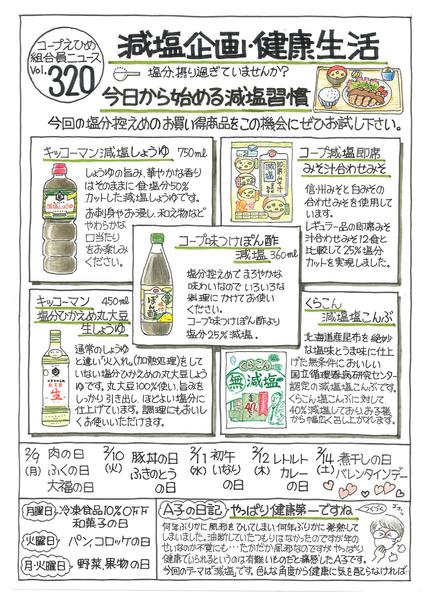 コープえひめ
組合員ニュース
Vol. 320
減塩企画・健康生活
塩分、摂り過ぎていませんか?
今日から始める減塩習慣
今回の塩分控えめのお買い得商品をこの機会にぜひお試し下さい。
キッコーマン減塩しょうゆ 750ml
しょうゆの旨み、華やかな香り
はそのままに食塩分50%
カットした減塩しょうゆです。
お刺身やお浸し、和え物など
やわらかな
口当たり
をお楽しみ
ください。
コープ減塩即席
みそ汁合わせみそ
信州みそと白みその
合わせみそを使用して
います。
レギュラー品の即席みそ
汁合わせみそ12食と
比較して25%塩分
カットを実現しました。
コープ味つけぽん酢
減塩 360ml
塩分控えめで まろやかな
味わいなので いろいろな
料理に かけてお使い
ください。
コープ味つけぽん酢より
塩分25%減塩。
キッコーマン 450ml
塩分ひかえめ丸大豆
生しょうゆ
通常のしょうゆ
と違い"火入れ"(加熱処理)をして
いない塩分ひかえめの丸大豆しょうゆ
です。丸大豆100%使い、旨みを
しっかり引き出し、ほどよい塩分に
仕上げています。調理にもおいし
くお使いいただけます。
くらこん
減塩塩こんぶ
北海道産昆布を絶妙
な塩味とうま味に仕上
げた無条件においしい
国立循環器病研究センター
認定の減塩塩こんぶです。
くらこん塩こんぶに対して
40%減塩しており、お子様
から幅広く召し上がれます。
2/9(月) 肉の日 ふくの日 大福の日
2/10(火) 豚丼の日 ふきのとうの日
2/11(水) 初午いなりの日
2/12(木) レトルトカレーの日
2/14(土) 煮干しの日 バレンタインデー
月曜日 冷凍食品10%OFF
和菓子の日
火曜日 パン、コロッケの日
月・火曜日 野菜、果物の日
A子の日記 やっぱり健康第一ですね
何年ぶりかに風邪をひいてしまい、何年ぶりかに発熱して
しまいました。油断していたつもりはなかったのですが年の
せいなのか不覚にも…たかだか風邪なのですがやっぱり
健康でいられるというのは有難いものだと痛感したA子です。
今回のテーマは"減塩"です。色んな角度から健康に気を配らなければ。